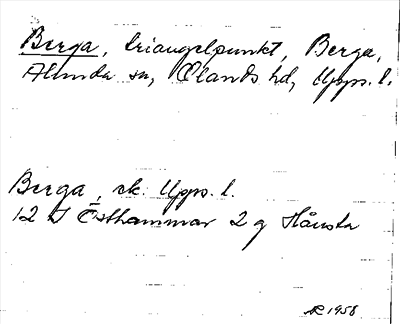 Berga, triangelpunkt, Berga,
Alunda sn, Olands hd, Upps. l.
Berga, ek. Upps. l.
12 I Östhammar 2 g Hånsta
1958